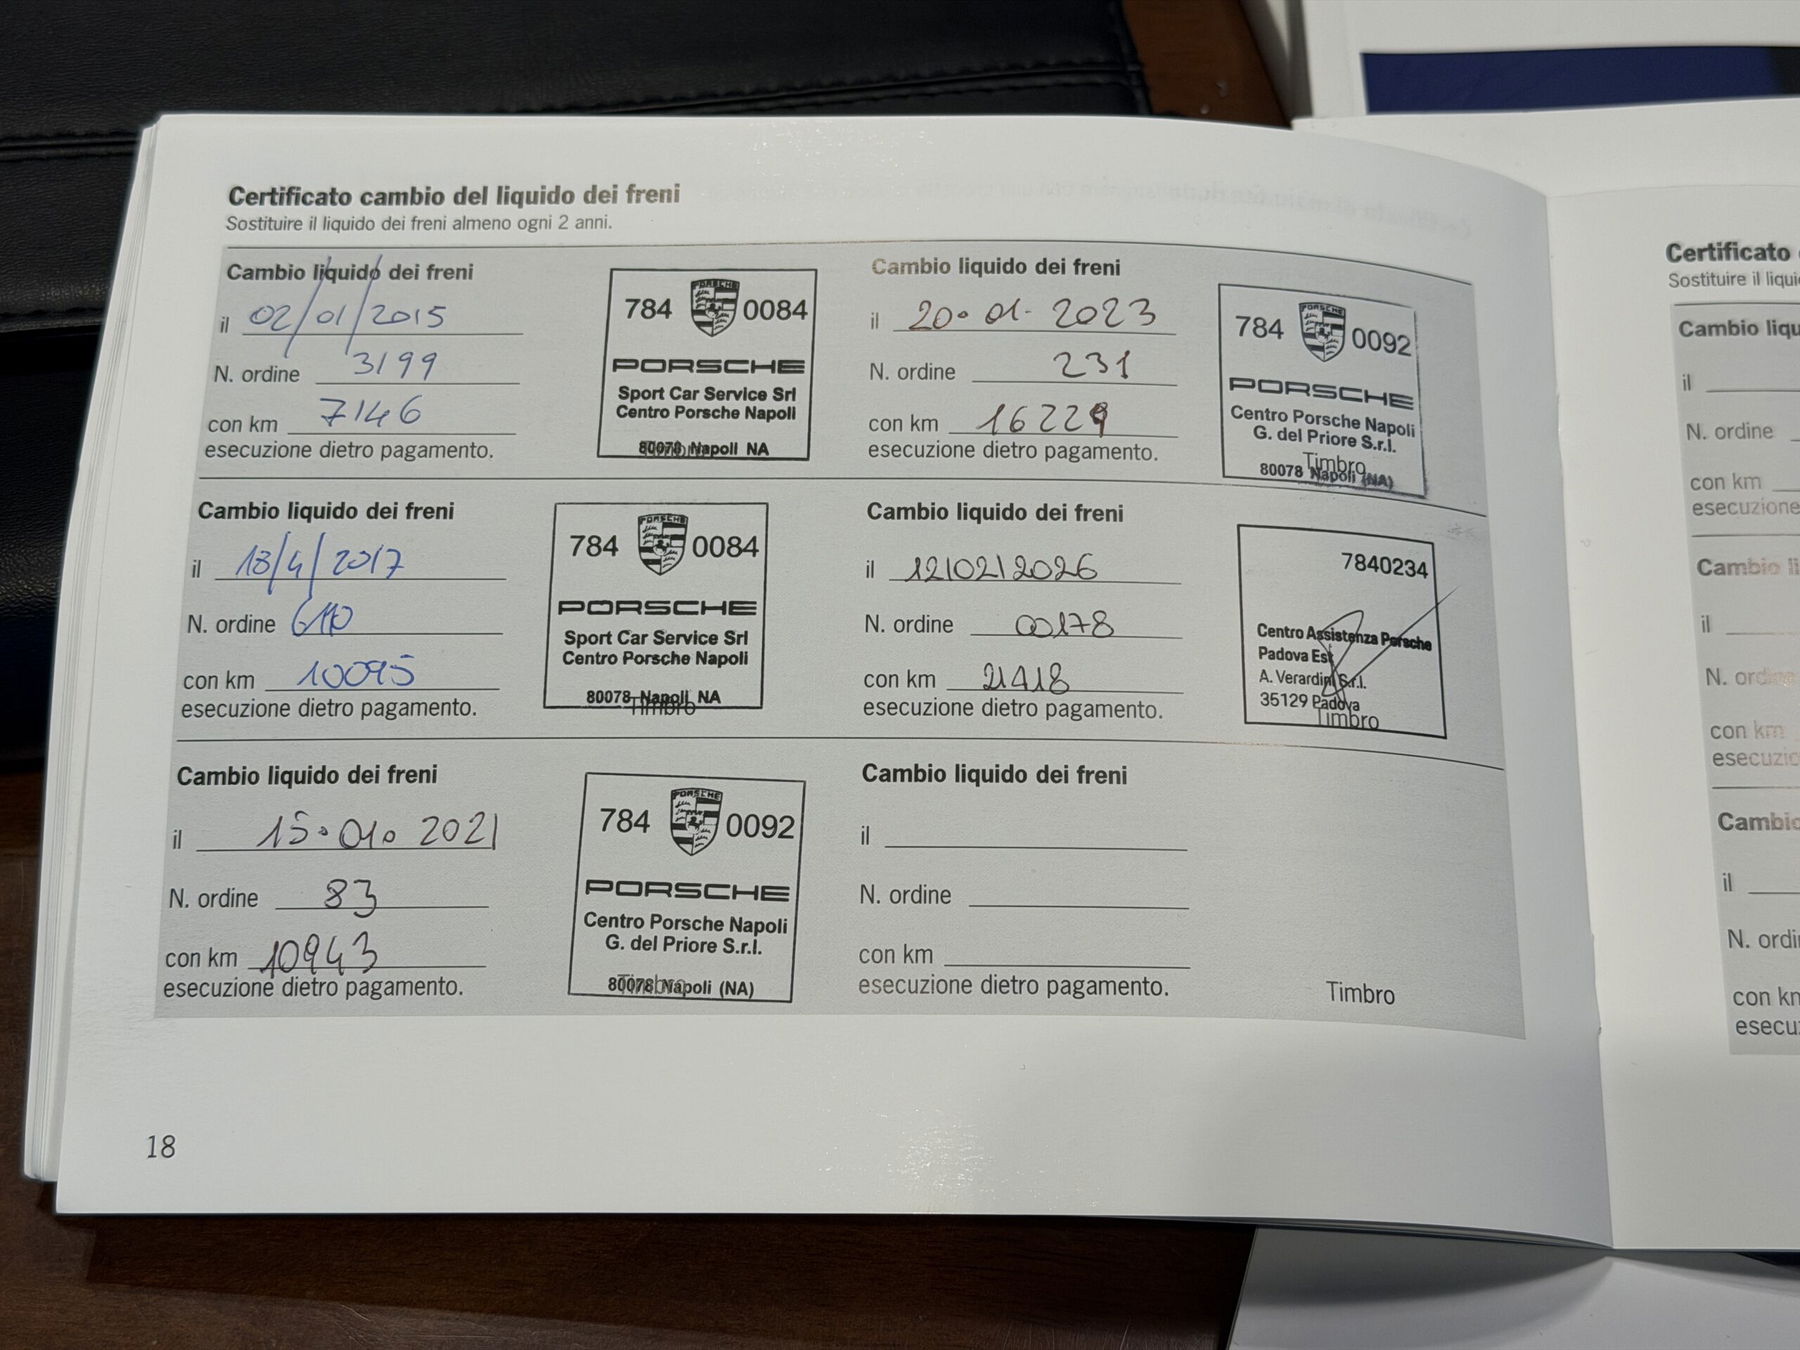 Certificato cambio del liquido dei freni
Sostituire il liquido dei freni almeno ogni 2 anni.
Cambio liquido dei freni
il 02/01/2015
N. ordine 3199
con km 7146
esecuzione dietro pagamento.
784 PORSCHE 0084
PORSCHE
Sport Car Service Srl
Centro Porsche Napoli
80078 Napoli NA
Cambio liquido dei freni
il 18/4/2017
N. ordine 6110
con km 10095
esecuzione dietro pagamento.
784 PORSCHE 0084
PORSCHE
Sport Car Service Srl
Centro Porsche Napoli
80078 Napoli NA
Timbro
Cambio liquido dei freni
il 15.01.2021
N. ordine 83
con km 10943
esecuzione dietro pagamento.
784 PORSCHE 0092
PORSCHE
Centro Porsche Napoli
G. del Priore S.r.l.
80078 Napoli (NA)
Timbro
Cambio liquido dei freni
il 20.01.2023
N. ordine 231
con km 16229
esecuzione dietro pagamento.
784 PORSCHE 0092
PORSCHE
Centro Porsche Napoli
G. del Priore S.r.l.
Timbro
80078 Napoli (NA)
Cambio liquido dei freni
il 12/02/2026
N. ordine 00178
con km 21418
esecuzione dietro pagamento.
7840234
Centro Assistenza Porsche
Padova Est
A. Verardini S.r.l.
35129 Padova
Timbro
Cambio liquido dei freni
il
N. ordine
con km
esecuzione dietro pagamento.
Timbro
18
Certificato
Sostituire il
Cambio
il
N. ordine
con km
Cambio
il
N.
con km
Cambio
il
N.
con